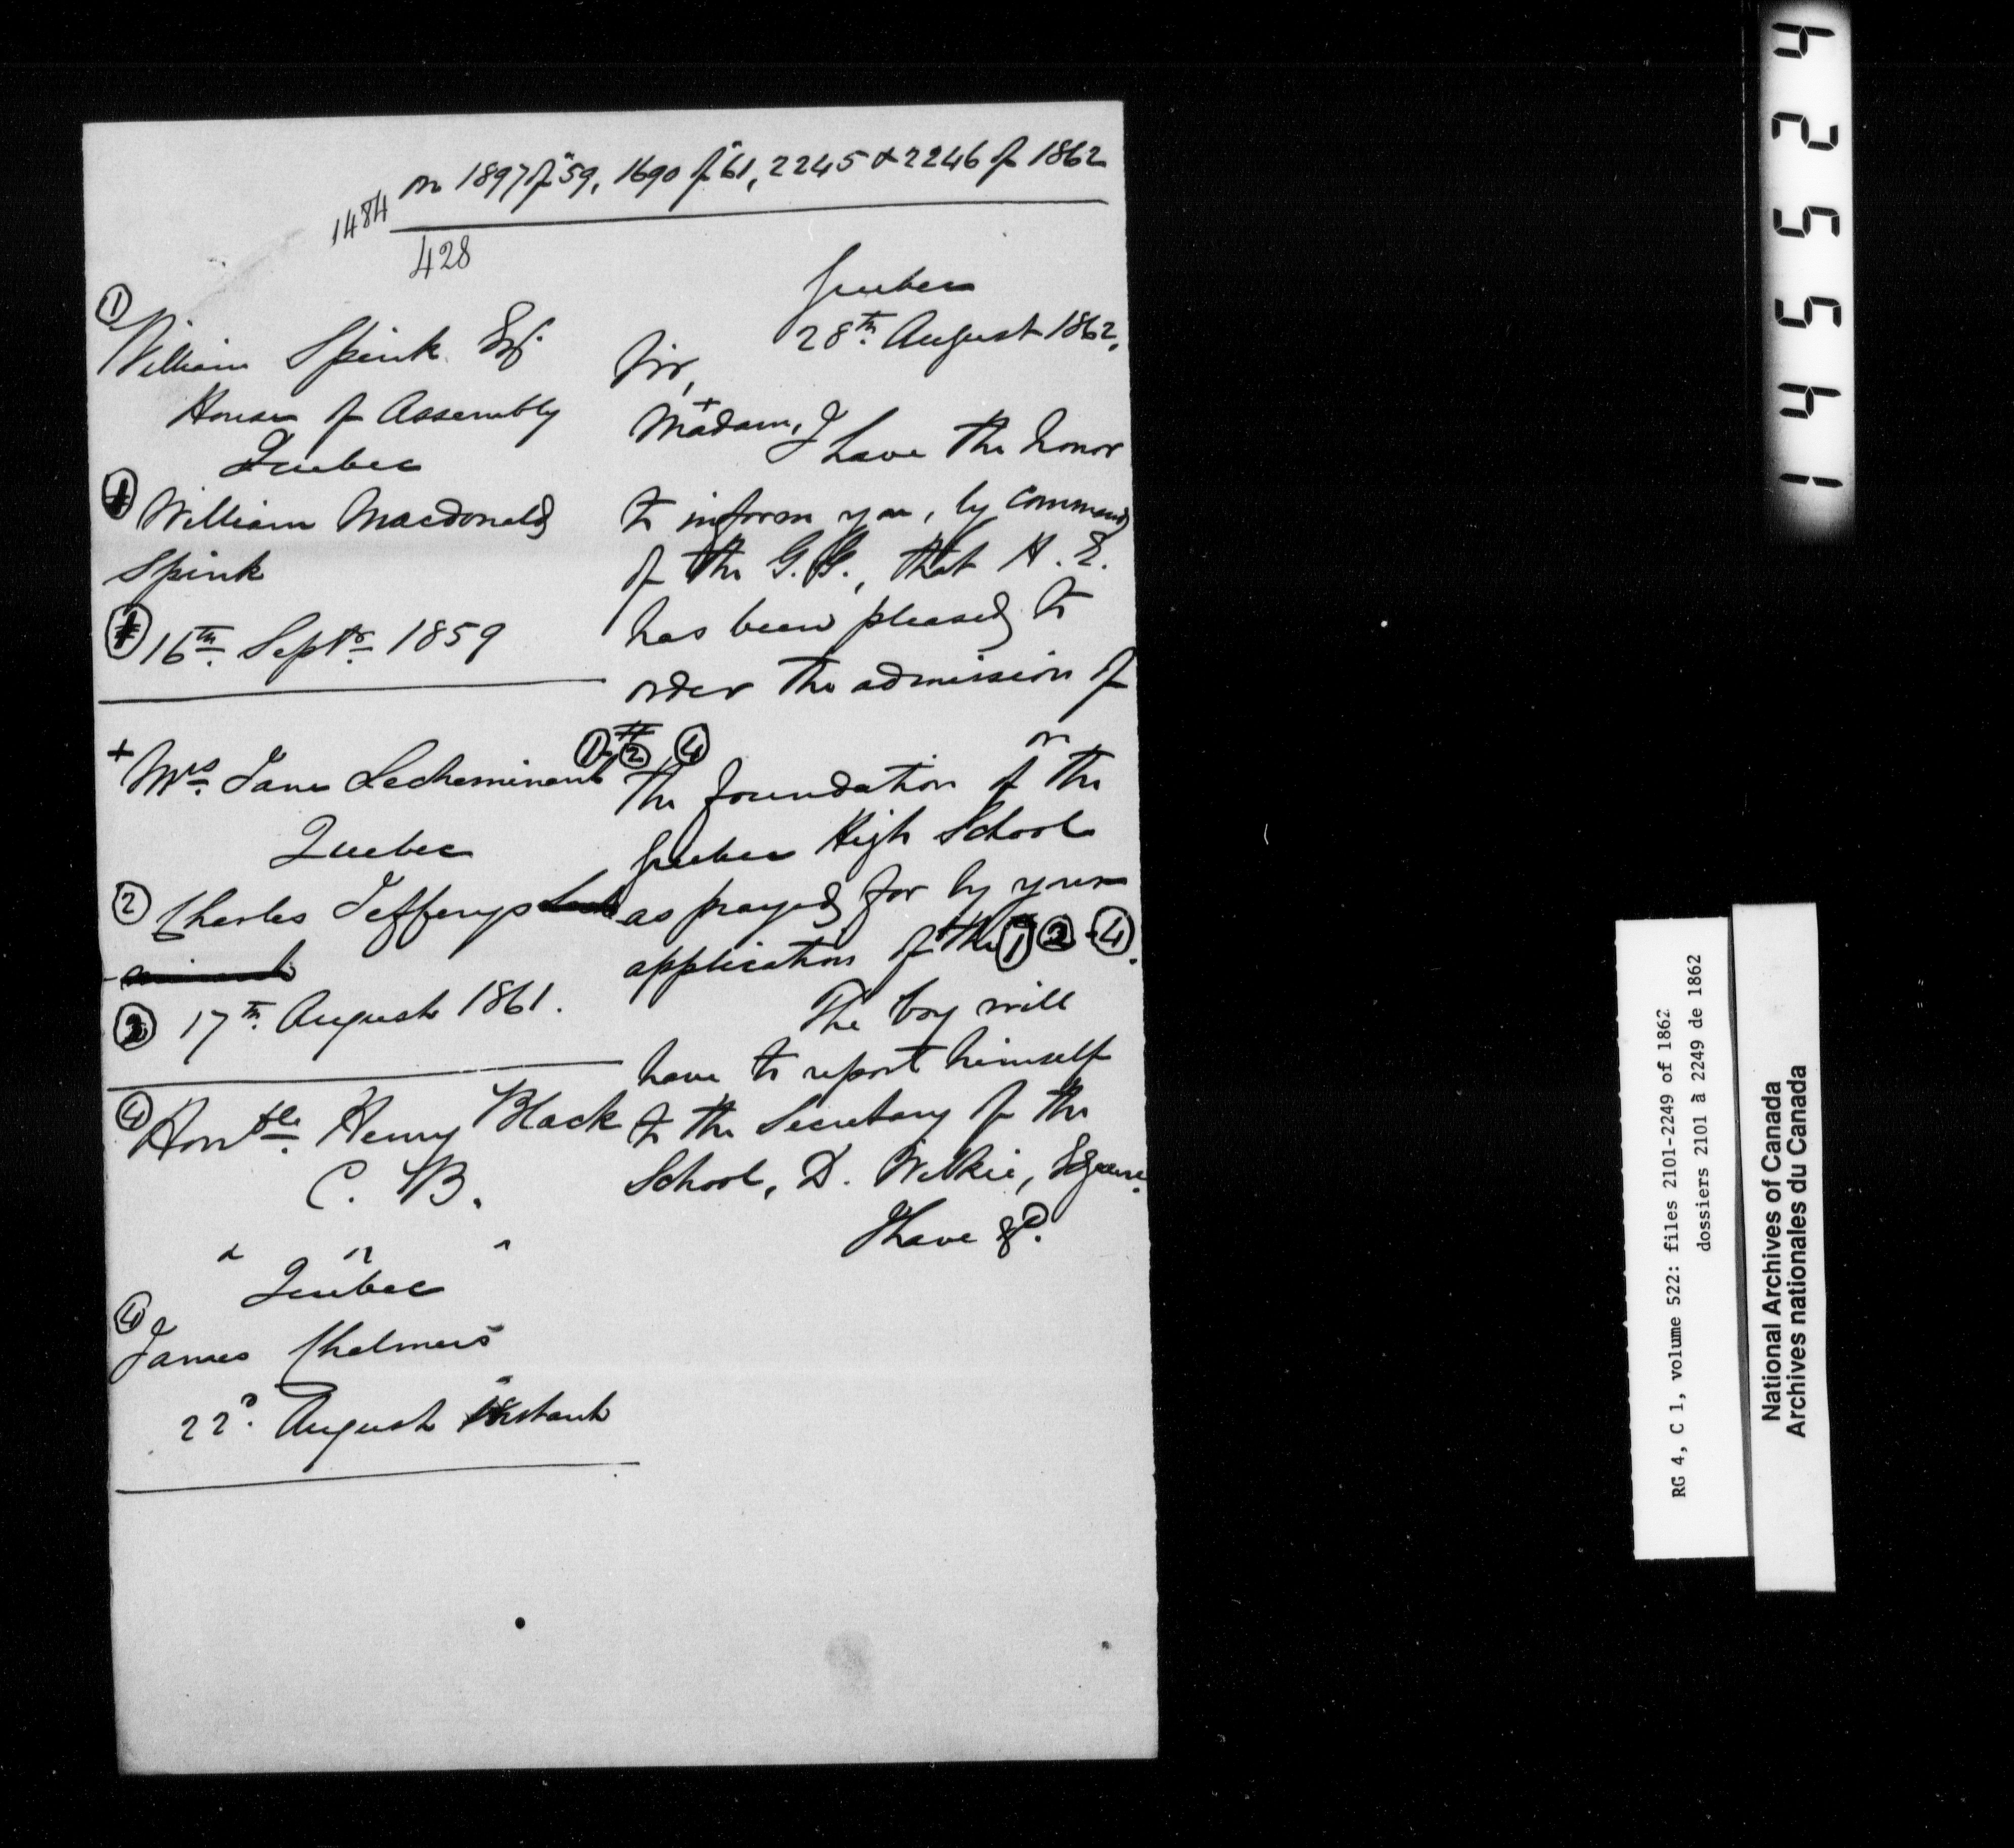 on 1897 of "59, 1690 of "61, 2245 & 2246 of 1862
1484
428
①
William Spink Esq.
House of Assembly
Quebec
William Macdonald
Spink
16th. Septr. 1859
+ Mrs. Jane Lecheminant
Quebec
② Charles Jefferys
② 17th. August 1861.
④ Honble. Henry Black
C. B.
" " "
Quebec
④
James Chalmers
22d. August instant
Quebec
28th. August 1862.
Sir,
+
Madam, I have the honor
to inform you, by command
of the G. G., that H. E.
has been pleased to
order the admission of
① # ② ④ on
the foundation of the
Quebec High School
as prayed for by your
application of the ① ② - ④.
The boy will
have to report himself
to the Secretary of the
School, D. Wilkie, Esquire.
I have &c.
145524
RG 4, C 1, volume 522: files 2101-2249 of 1862
dossiers 2101 à 2249 de 1862
National Archives of Canada
Archives nationales du Canada